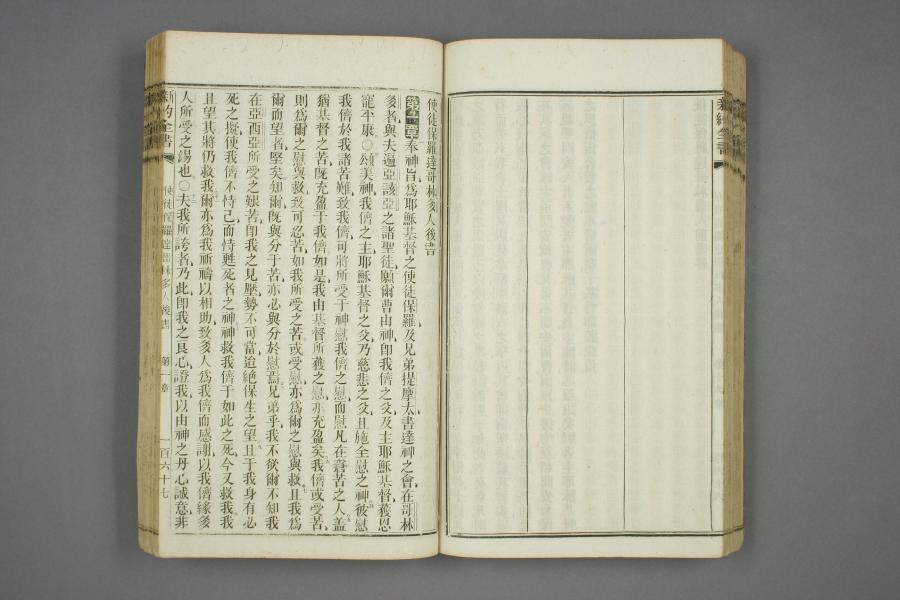 使徒保羅達哥林多人後書
第一章奉神旨爲耶穌基督之使徒保羅及兄弟提摩太書達神之會在哥林
多者與夫遍亞該亞之諸聖徒願爾曹由神卽我儕之父及主耶穌基督獲恩
寵平康〇頌美神我儕之主耶穌基督之父乃慈悲之父且施全慰之神彼慰
我儕於我諸苦難致我儕可將所受于神慰我儕之慰而慰凡在窘苦之人蓋
猶基督之苦旣充盈于我儕如是我由基督所獲之慰亦充盈矣我儕或受苦
則爲爾之慰與救致可忍苦如我所受之苦或受慰亦爲爾之慰與救且我爲
爾而望者堅矣知爾旣與分于苦亦必與分於慰焉兄弟乎我不欲爾不知我
在亞西亞所受之艱苦卽我之見壓勢不可當迨絕保生之望且于我身有必
死之擬使我儕不恃己而恃甦死者之神神救我儕于如此之死今又救我我
且望其將仍救我爾亦爲我祈禱以相助致多人爲我儕而感謝以我儕緣多
人所受之錫也〇夫我所誇者乃此卽我之良心證我以由神之丹心誠意非
新約全書 使徒保羅達哥林多人後書 第一章 一百六十七
新約全書